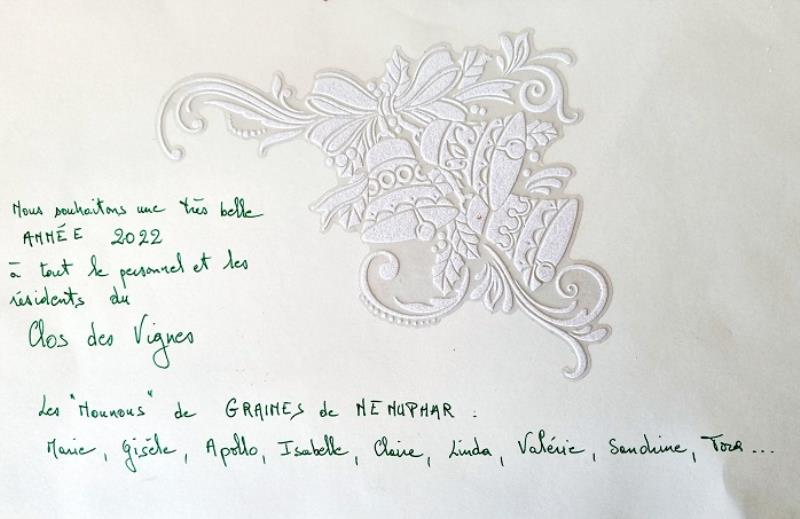 Nous souhaitons une très belle
ANNÉE 2022
à tout le personnel et les
résidents du
Clos des Vignes
Les "Nounous" de GRAINES de NENUPHAR :
Marie, Gisèle, Apollo, Isabelle, Claire, Linda, Valérie, Sandrine, ...